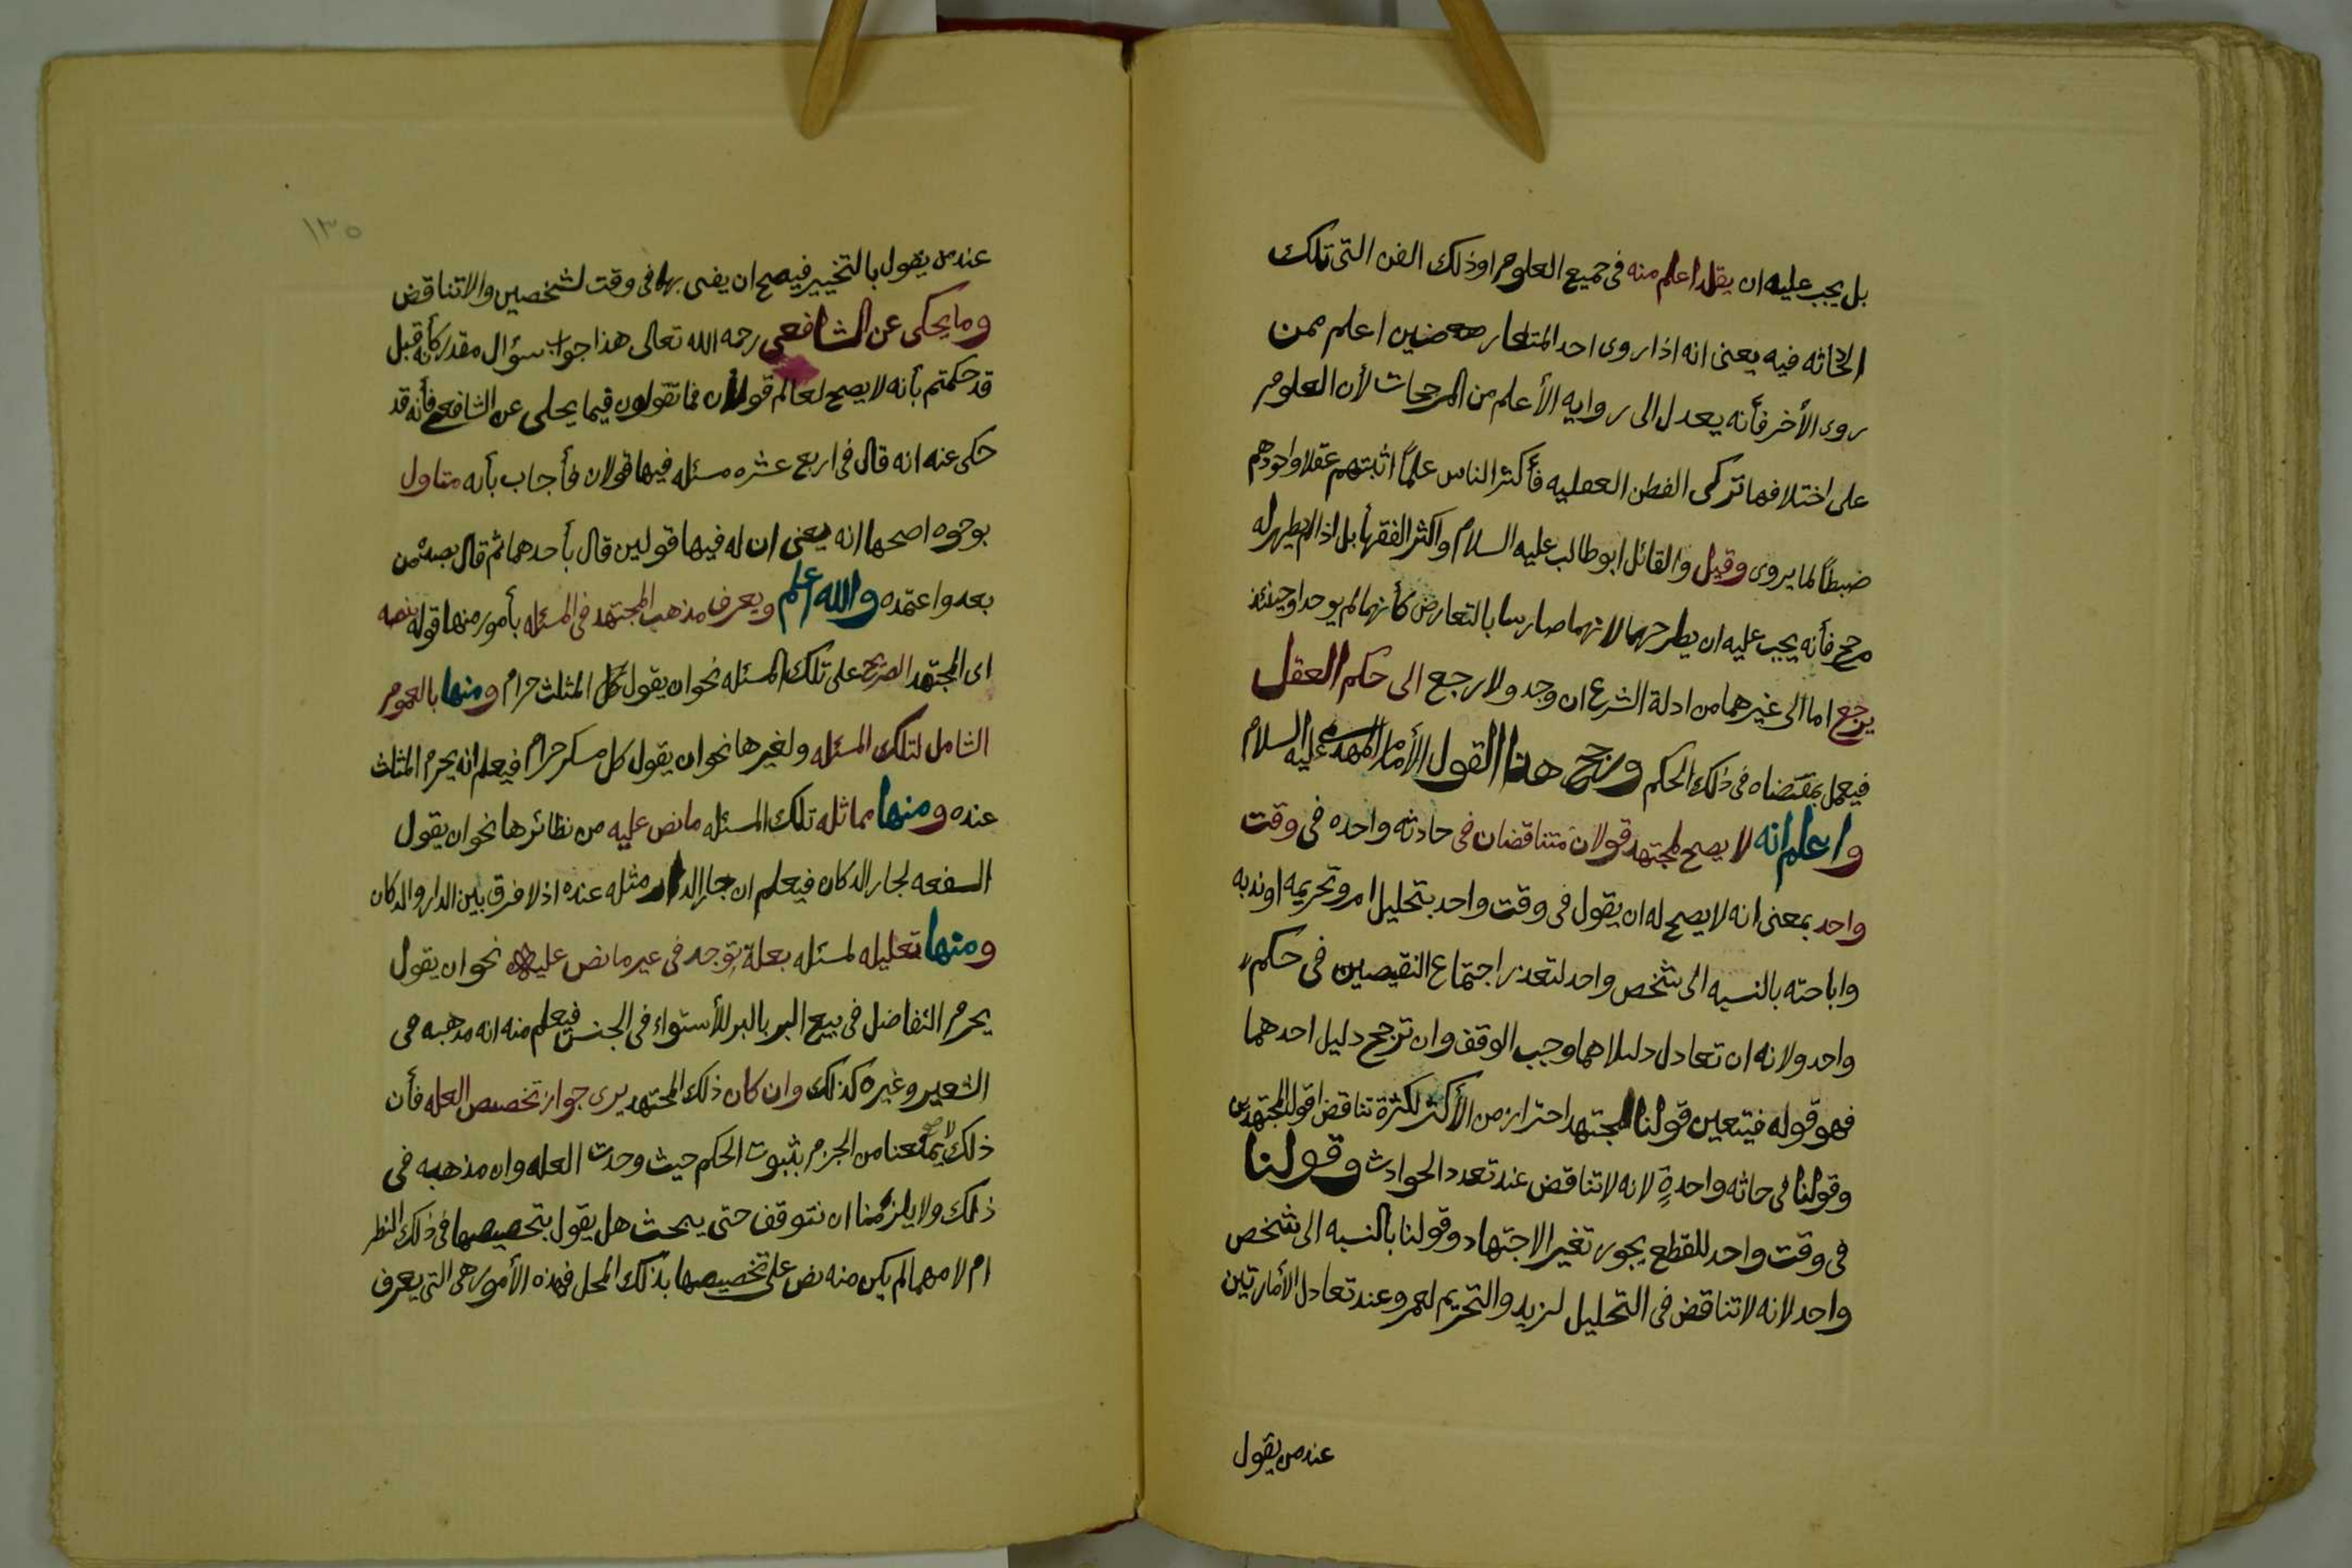 بل يجب عليه ان يقلد اعلم منه في جميع العلوم او ذلك الفن التى تلك
الحاثه فيه يعنى انه اذا روى احد المتعارضين اعلم ممن
روى الأخر فأنه يعدل الى روايه الأعلم من المرجحات لأن العلوم
على اختلافها تزكى الفطن العقليه فأكثر الناس علماً اثبتهم عقلا واجودهم
ضبطاً لما يروى وقيل والقائل ابو طالب عليه السلام واكثر الفقهأ بل اذا لم يظهر له
مرجح فأنه يجب عليه ان يطرحهما لانهما صارسا بالتعارض كأنهما لم يوجدا وحينئذ
يرجع اما الى غيرهما من ادلة الشرع ان وجد ولا رجع الى حكم العقل
فيعمل بمقتضاه في ذلك الحكم ورجح هذا القول الأمام المهدى عليه السلام
واعلم انه لا يصح لمجتهد قولان متناقضان في حادثه واحده في وقت
واحد بمعنى انه لا يصح له ان يقول في وقت واحد بتحليل امر وتحريمه او ندبه
واباحته بالنسبه الى شخص واحد لتعذر اجتماع النقيضين في حكم
واحد ولانه ان تعادل دليلاهما وجب الوقف وان ترجح دليل احدهما
فهو قوله فيتعين قولنا لمجتهد احتراز من الأكثر لكثرة تناقض اقوال المجتهدين
وقولنا في حاثه واحدةٍ لانه لا تناقض عند تعدد الحوادث وقولنا
في وقت واحد للقطع بجوز تغير الاجتهاد وقولنا بالنسبه الى شخص
واحد لانه لا تناقض في التحليل لزيد والتحريم لعمرو عند تعادل الأمارتين
عند من يقول
١٣٥
عند من يقول بالتخيير فيصح ان يفتى بها في وقت لشخصين والا تناقض
وما يحكى عن الشافعى رحمه الله تعالى هذا جواب سؤال مقدر كأنه قيل
قد حكمتم بأنه لا يصح لعالم قولان فما تقولون فيما يحكى عن الشافعى فأنه قد
حكى عنه انه قال في اربع عشره مسئله فيها قولان فأجاب بأنه متاول
بوجوه اصحها انه يعنى ان له فيها قولين قال بأحدهما ثم قال بصه من
بعد واعتمده والله اعلم ويعرف مذهب المجتهد في المسئله بأمور منها قوله بنصه
اى المجتهد الصريح على تلك المسئله نحو ان يقول كل المثلث حرام ومنها بالعموم
الشامل لتلك المسئله ولغيرها نحو ان يقول كل مسكر حرام فيعلم انه يحرم المثلث
عنده ومنها مماثله تلك المسئله ما نص عليه من نظائرها نحو ان يقول
السفعه لجار الدكان فيعلم ان جار الدار مثله عنده اذ لا فرق بين الدار والدكان
ومنها تعليله لمسئله بعلة توجد في غير ما نص عليه نحو ان يقول
يحرم التفاضل في بيع البر بالبر للأستواء في الجنس فيعلم منه انه مذهبه في
الشعير وغيره كذلك وان كان ذلك المجتهد يرى جواز تخصيص العله فأن
ذلك لا يمنعنا من الجزم بثبوت الحكم حيث وجدت العله وان مذهبه في
ذلك ولا يلزمنا ان نتوقف حتى يبحث هل يقول بتخصيصها في ذلك النظر
ام لا مهما لم يكن منه نص على تخصيصها بذلك المحل فهذه الأمور هى التى يعرف